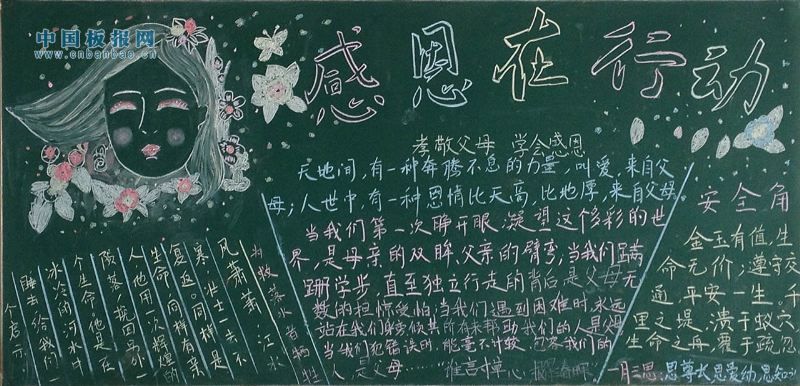 中国板报网
www.cnbanbao.cn
感恩在行动
孝敬父母 学会感恩
天地间,有一种奔腾不息的力量,叫爱,来自父
母;人世中,有一种恩情比天高,比地厚,来自父母。
当我们第一次睁开眼,凝望这个多彩的世
界,是母亲的双眸、父亲的臂弯,当我们蹒
跚学步,直至独立行走的背后是父母无
数的担惊受怕;当我们遇到困难时,永远
站在我们身旁倾其所有来帮助我们的人是父母
当我们犯错误时,能毫不计较,包容我们的
人是父母……谁言寸草心,报
为救落水者牺牲
风萧萧,江水
寒,壮士一去不
复返。同样是
人,同样有着
生命,他用一次辉煌的
陨落,挽回另外一
个生命。他是在
冰冷的河水中
睡去,给我们一
个启示
安全角
金玉有值,生
命无价;遵守交
通,平安一生。千
里之堤,溃于蚁穴
生命之舟,覆于疏忽
一月三思:思尊长,思爱幼,思知